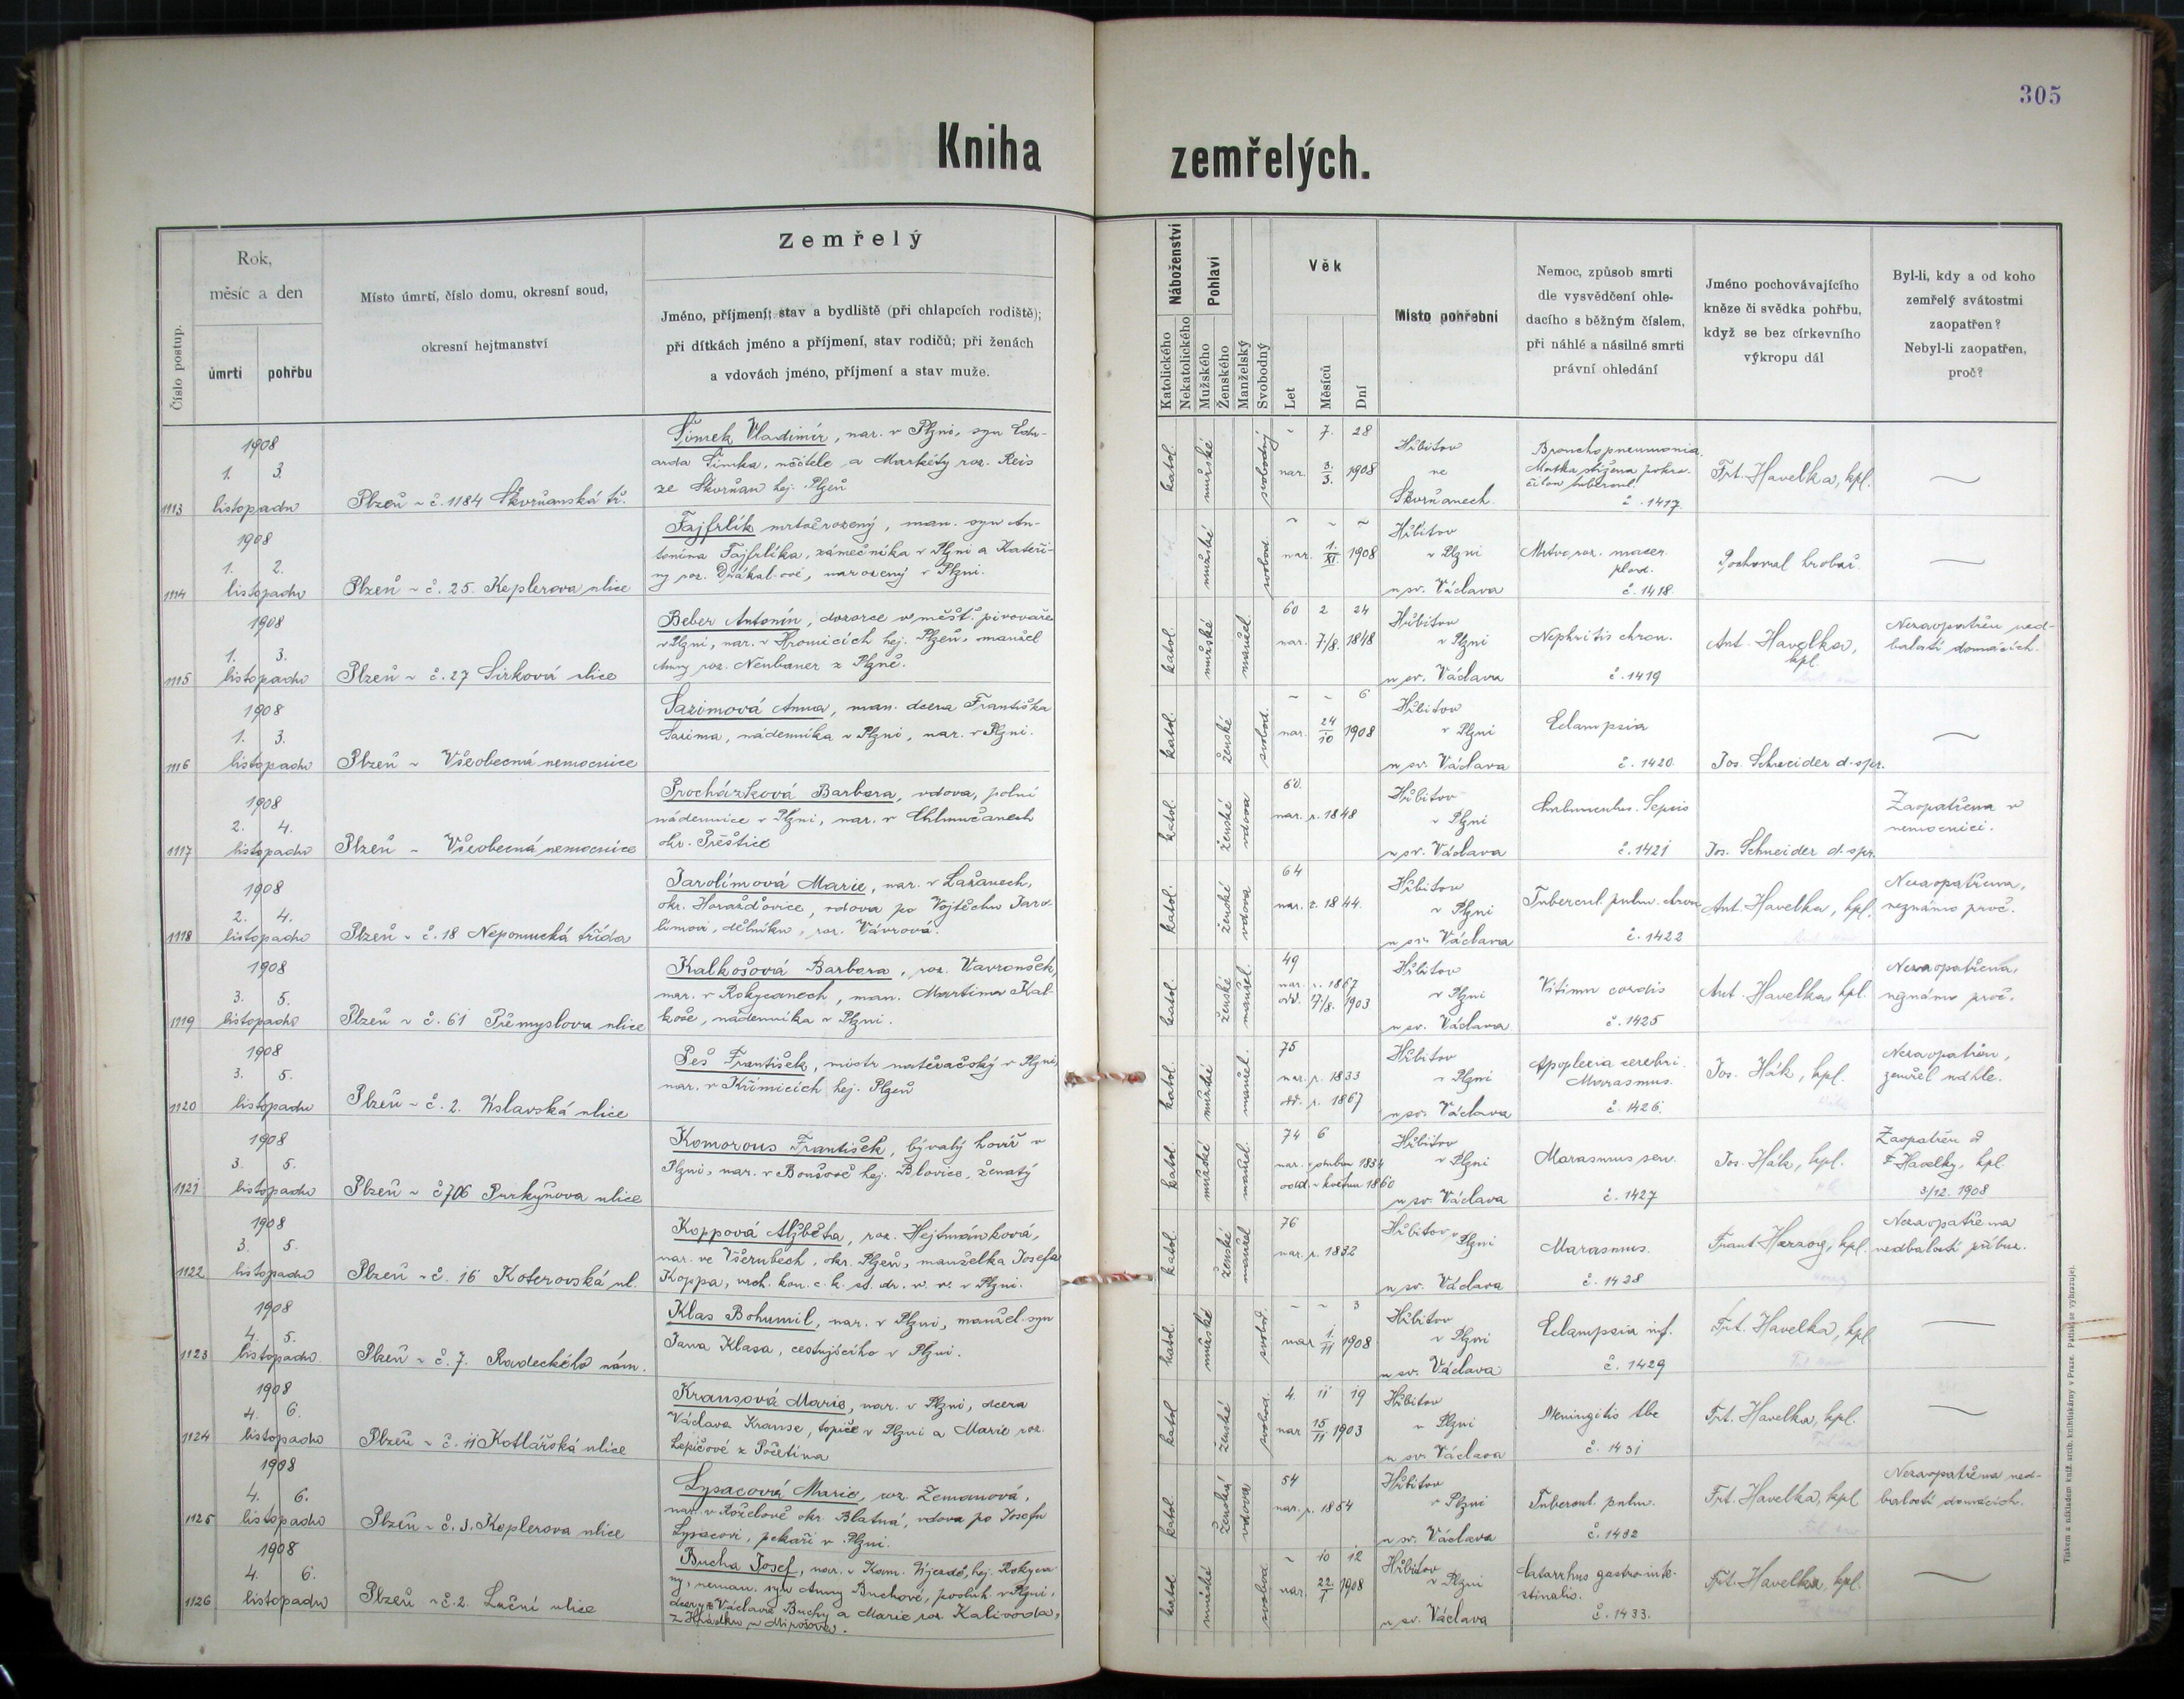 305
Kniha zemřelých.
Číslo postup.
Rok,
měsíc a den
úmrtí
pohřbu
Místo úmrtí, číslo domu, okresní soud,
okresní hejtmanství
Zemřelý
Jméno, příjmení, stav a bydliště (při chlapcích rodiště);
při dítkách jméno a příjmení, stav rodičů; při ženách
a vdovách jméno, příjmení a stav muže.
Náboženství
Katolického
Nekatolického
Pohlaví
Mužského
Ženského
Manželský
Svobodný
Věk
Let
Měsíců
Dní
Místo pohřební
Nemoc, způsob smrti
dle vysvědčení ohle-
dacího s běžným číslem,
při náhlé a násilné smrti
právní ohledání
Jméno pochovávajícího
kněze či svědka pohřbu,
když se bez církevního
výkropu dál
Byl-li, kdy a od koho
zemřelý svátostmi
zaopatřen?
Nebyl-li zaopatřen,
proč?
1113
1908
1. 3.
listopadu
Plzeň - č. 1184 Škvrňanská tř.
Šimek Vladimír, nar. v Plzni, syn Edu-
arda Šimka, učitele a Markéty roz. Reis
ze Škvrňan hej. Plzeň
katol.
mužské
svobodný
- 7. 28
nar. 3./3. 1908
Hřbitov
ve
Škvrňanech
Bronchopneumonia.
Matka stižena pokro-
čilou tuberkul.
č. 1417.
Frt. Havelka, kpl.
1114
1908
1. 2.
listopadu
Plzeň - č. 25. Keplerova ulice
Fajfrlík mrtvěrozený, man. syn An-
tonína Fajfrlíka, zámečníka v Plzni a Kateři-
ny roz. Dvířákal-ové, narozený v Plzni.
mužské
svobod.
- - -
nar. 1./XI. 1908
Hřbitov
v Plzni
u sv. Václava
Mrtvo roz. macer.
plod.
č. 1418.
Pochoval hrobař.
1115
1908
1. 3.
listopadu
Plzeň - č. 27 Sirková ulice
Beber Antonín, dozorce v měšť. pivováře
v Plzni, nar. v Hromicích hej. Plzeň, manžel
Anny roz. Neubauer z Plzně.
katol.
mužské
manžel.
60 2 24
nar. 7/8. 1848
Hřbitov
v Plzni
u sv. Václava
Nephritis chron.
č. 1419
Ant. Havelka,
kpl.
Nezaopatřen ned-
balostí domácích.
1116
1908
1. 3.
listopadu
Plzeň - Všeobecná nemocnice
Sazimová Anna, man. dcera Františka
Sazima, nádenníka v Plzni, nar. v Plzni.
katol.
ženské
svobod.
- - 6
nar. 24/10 1908
Hřbitov
v Plzni
u sv. Václava
Eclampsia
č. 1420
Jos. Schneider d. spr.
1117
1908
2. 4.
listopadu
Plzeň - Všeobecná nemocnice
Procházková Barbora, vdova, polní
nádennice v Plzni, nar. v Chlumčanech
okr. Přeštice
katol.
ženské
vdova
60.
nar. r. 1848
Hřbitov
v Plzni
u sv. Václava
Carbunculus. Sepsis
č. 1421
Jos. Schneider d. spr.
Zaopatřena v
nemocnici.
1118
1908
2. 4.
listopadu
Plzeň - č. 18 Nepomucká třída
Jarolímová Marie, nar. v Lažanech,
okr. Horažďovice, vdova po Vojtěchu Jaro-
límovi, dělníku, roz. Vávrová.
katol.
ženské
vdova
64
nar. r. 1844.
Hřbitov
v Plzni
u sv. Václava
Tubercul. pulm. chron.
č. 1422
Ant. Havelka, kpl.
Nezaopatřena,
neznámo proč.
1119
1908
3. 5.
listopadu
Plzeň - č. 61 Přemyslova ulice
Kalkošová Barbora, roz. Vavroušek,
nar. v Rokycanech, man. Martina Kal-
koše, nádenníka v Plzni.
katol.
ženské
manžel.
49
nar. r. 1867
odd. 17/8. 1903
Hřbitov
v Plzni
u sv. Václava
Vitium cordis
č. 1425
Ant. Havelka kpl.
Nezaopatřena,
neznámo proč.
1120
1908
3. 5.
listopadu
Plzeň - č. 2. Úslavská ulice
Peš František, mistr natěračský v Plzni,
nar. v Křimicích hej. Plzeň
katol.
mužské
manžel.
75
nar. r. 1833
odd. r. 1867
Hřbitov
v Plzni
u sv. Václava
Apoplexia cerebri.
Marasmus.
č. 1426.
Jos. Hák, kpl.
Nezaopatřen,
zemřel náhle.
1121
1908
3. 5.
listopadu
Plzeň - č 706 Purkyňova ulice
Komorous František, bývalý horník v
Plzni, nar. v Boušově hej. Blovice, ženatý
katol.
mužské
manžel.
74 6
nar. v dubnu 1834
odd. v květnu 1860
Hřbitov
v Plzni
u sv. Václava
Marasmus sen.
č. 1427
Jos. Hák, kpl.
Zaopatřen od
F. Havelky, kpl.
3/12. 1908
1122
1908
3. 5.
listopadu
Plzeň - č. 16 Koterovská ul.
Koppová Alžběta, roz. Hejtmánková,
nar. ve Všerubech, okr. Plzeň, manželka Josefa
Koppa, vrch. kon. c. k. st. dr. v. v. v Plzni.
katol.
ženské
manžel
76
nar. r. 1832
Hřbitov v Plzni
u sv. Václava
Marasmus.
č. 1428
Frant Herzog, kpl.
Nezaopatřena
nedbalostí příbuz.
1123
1908
4. 5.
listopadu
Plzeň - č. 7. Radeckého nám.
Klas Bohumil, nar. v Plzni, manžel. syn
Jana Klasa, cestujícího v Plzni.
katol.
mužské
svobod.
- - 3
nar 1./11 1908
Hřbitov
v Plzni
u sv. Václava
Eclampsia inf.
č. 1429
Frt. Havelka, kpl
1124
1908
4. 6.
listopadu
Plzeň - č. 11 Kotlářská ulice
Krausová Marie, nar. v Plzni, dcera
Václava Krause, topiče v Plzni a Marie roz.
Lepičové z Početina
katol
ženské
svobod.
4. 11 19
nar 15/11 1903
Hřbitov
v Plzni
u sv. Václava
Meningitis tbc
č. 1431
Frt. Havelka, kpl.
1125
1908
4. 6.
listopadu
Plzeň - č. 3. Keplerova ulice
Lysacová Marie, roz. Zemanová,
nar. v Roželově okr. Blatná, vdova po Josefu
Lysacovi, pekaři v Plzni.
katol.
ženská
vdova
54
nar. r. 1854
Hřbitov
v Plzni
u sv. Václava
Tubercul. pulm.
č. 1432
Frt. Havelka, kpl
Nezaopatřena ned-
balostí domácích.
1126
1908
4. 6.
listopadu
Plzeň - č. 2. Luční ulice
Bucha Josef, nar. v Kam. Újezdě, hej. Rokyca-
ny, neman. syn Anny Buchové, posluh. v Plzni,
dcery Václava Buchy a Marie roz. Kalivoda,
z Hrádku u
katol.
mužské
svobod.
- 10 12
nar. 22./1 1908
Hřbitov
v Plzni
u sv. Václava
Catarrhus gastro-inte-
stinalis.
č. 1433.
Frt. Havelka, kpl.
Tiskem a nákladem kníž. arcib. knihtiskárny v Praze. Patisk se vyhrazuje).